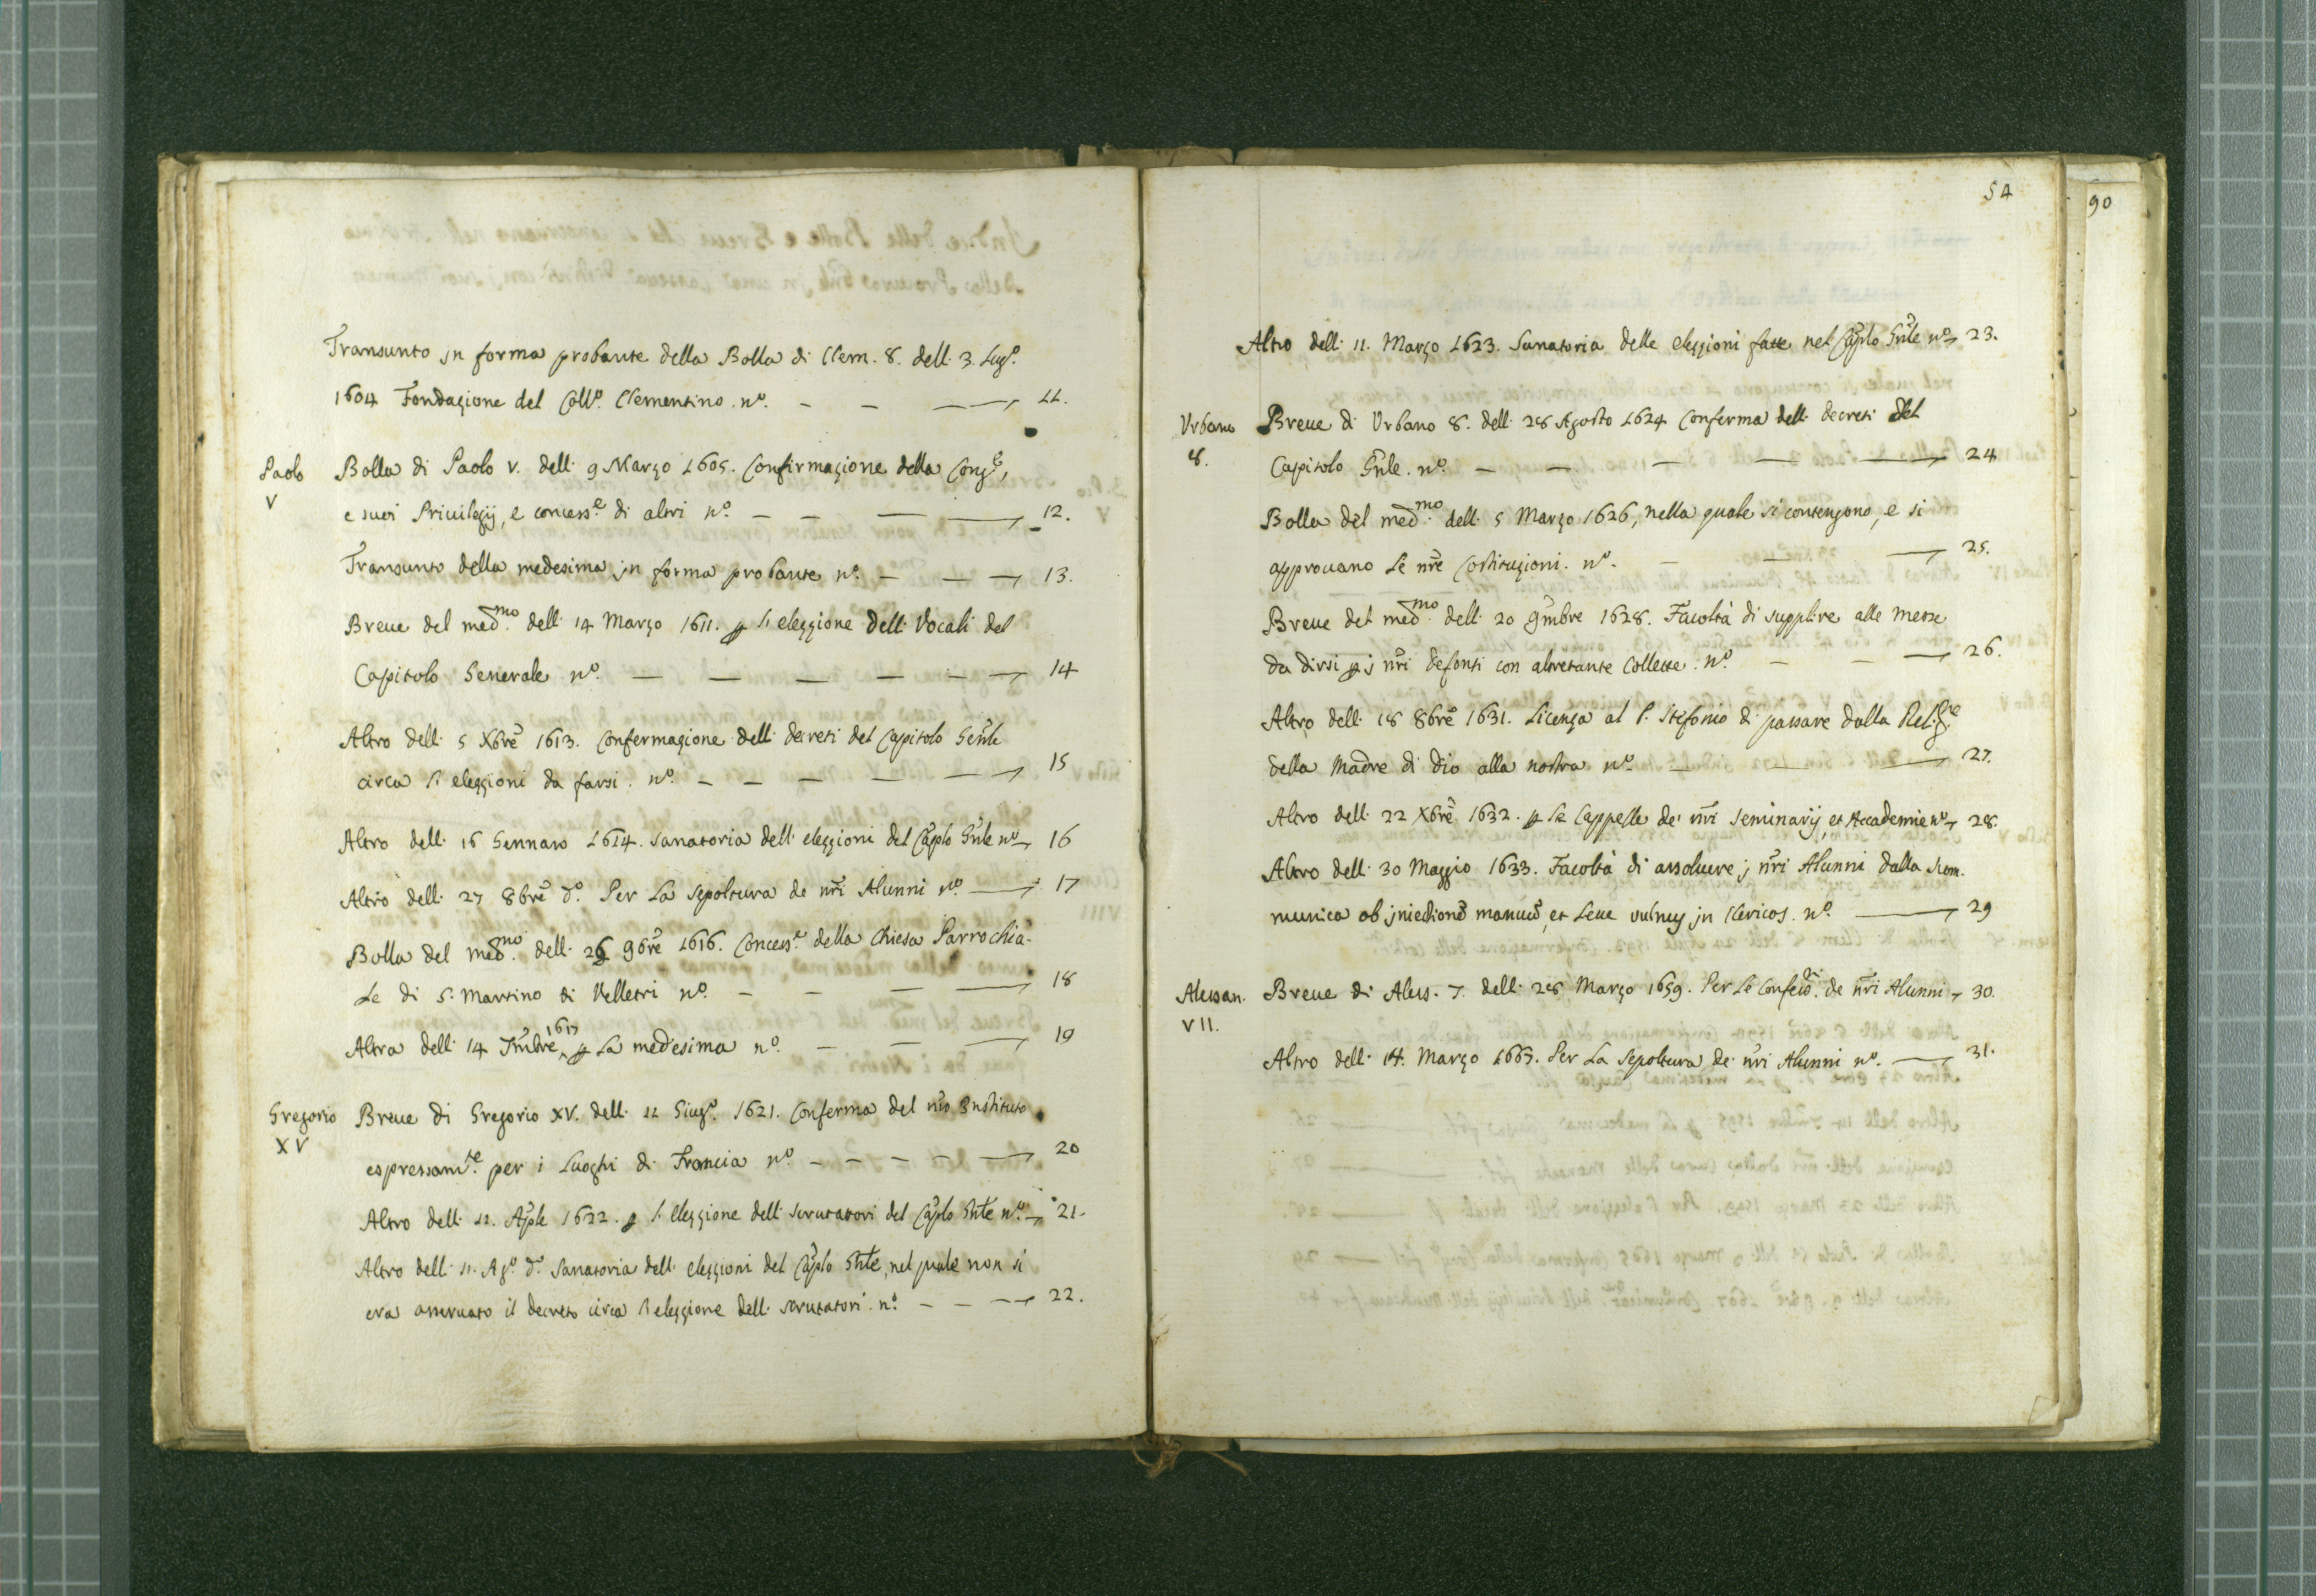 Transunto jn forma probante della Bolla di Clem. 8. dell. 3. Lugº.
1604 Fondazione del Collº. Clementino. nº. 11.
Paolo V
Bolla di Paolo V. dell. 9 Marzo 1605. Confirmazione della Congᵉ,
e suoi Priuilegij, e concessᵉ. di altri nº. 12.
Transunto della medesima jn forma probante nº. 13.
Breue del medᵐᵒ. dell. 14 Marzo 1611. ꝑ l'elezzione dell. Vocali del
Capitolo Generale nº. 14
Altro dell. 5 Xbrē 1613. Confermazione dell. decreti del Capitolo Genle
circa l'elezzioni da farsi. nº. 15
Altro dell. 16 Gennaro 1614. sanatoria dell. elezzioni del Caplo Gnle nº 16
Altro dell. 27 8brē dº. Per La sepoltura de nrī Alunni nº. 17
Bolla del medᵐᵒ. dell. 26 9brē 1616. Concessᵉ. della Chiesa Parrochia-
Le di S. Martino di Velletri nº. 18
Altra dell. 14 7mbre 1617 ꝑ La medesima nº. 19
Gregorio XV
Breue di Gregorio XV. dell. 11 Giugº. 1621. Conferma del nrō Instituto
espressamᵗᵉ. per i Luoghi di Francia nº. 20
Altro dell. 12. Aple 1622. ꝑ l'elezzione dell. scrutatori del Caplo Gnle nº. 21.
Altro dell. 11. Agº. dº. Sanatoria dell. elezzioni del Caplo Gnle, nel quale non si
era osseruato il decreto circa l'elezzione dell. scrutatori. nº. 22.
54
90
Altro dell. 11. Marzo 1623. Sanatoria delle elezzioni fatte nel Caplo Gnle nº 23.
Urbano 8.
Breue di Urbano 8. dell. 28 Agosto 1624 Conferma dell. decreti del
Capitolo Gnle. nº. 24
Bolla del medᵐᵒ. dell. 5 Marzo 1626, nella quale si contengono, e si
approuano Le nrē Costituzioni. nº. 25.
Breue del medᵐᵒ. dell. 20 9mbre 1628. Facoltà di supplire alle messe
da dirsi ꝑ j nrī defonti con altretante Collette. nº. 26.
Altro dell. 18 8brē 1631. Licenza al P. Stefonio di passare dalla Religⁿᵉ.
della Madre di Dio alla nostra nº. 27.
Altro dell. 22 Xbrē. 1632. ꝑ Le Cappelle de' nrī Seminarij, et Accademie nº 28.
Altro dell. 30 Maggio 1633. Facoltà di assoluere j nrī Alunni dalla scom.
munica ob jniectionē manuū, et Leue vulnus jn Clericos. nº. 29
Alessan. VII.
Breue di Aless. 7. dell. 28 Marzo 1659. Per Le Confessⁿⁱ. de nrī Alunni 30.
Altro dell. 14. Marzo 1667. Per La Sepoltura de nrī Alunni nº. 31.